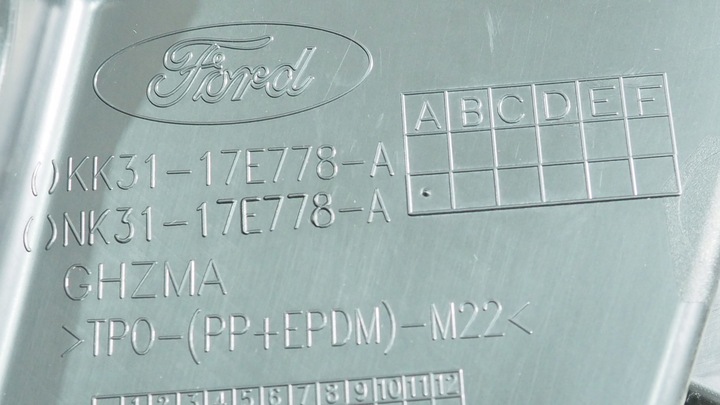 Ford
A B C D E F
()KK31-17E778-A
()NK31-17E778-A
GHZMA
>TPO-(PP+EPDM)-M22<
1 2 3 4 5 6 7 8 9 10 11 12